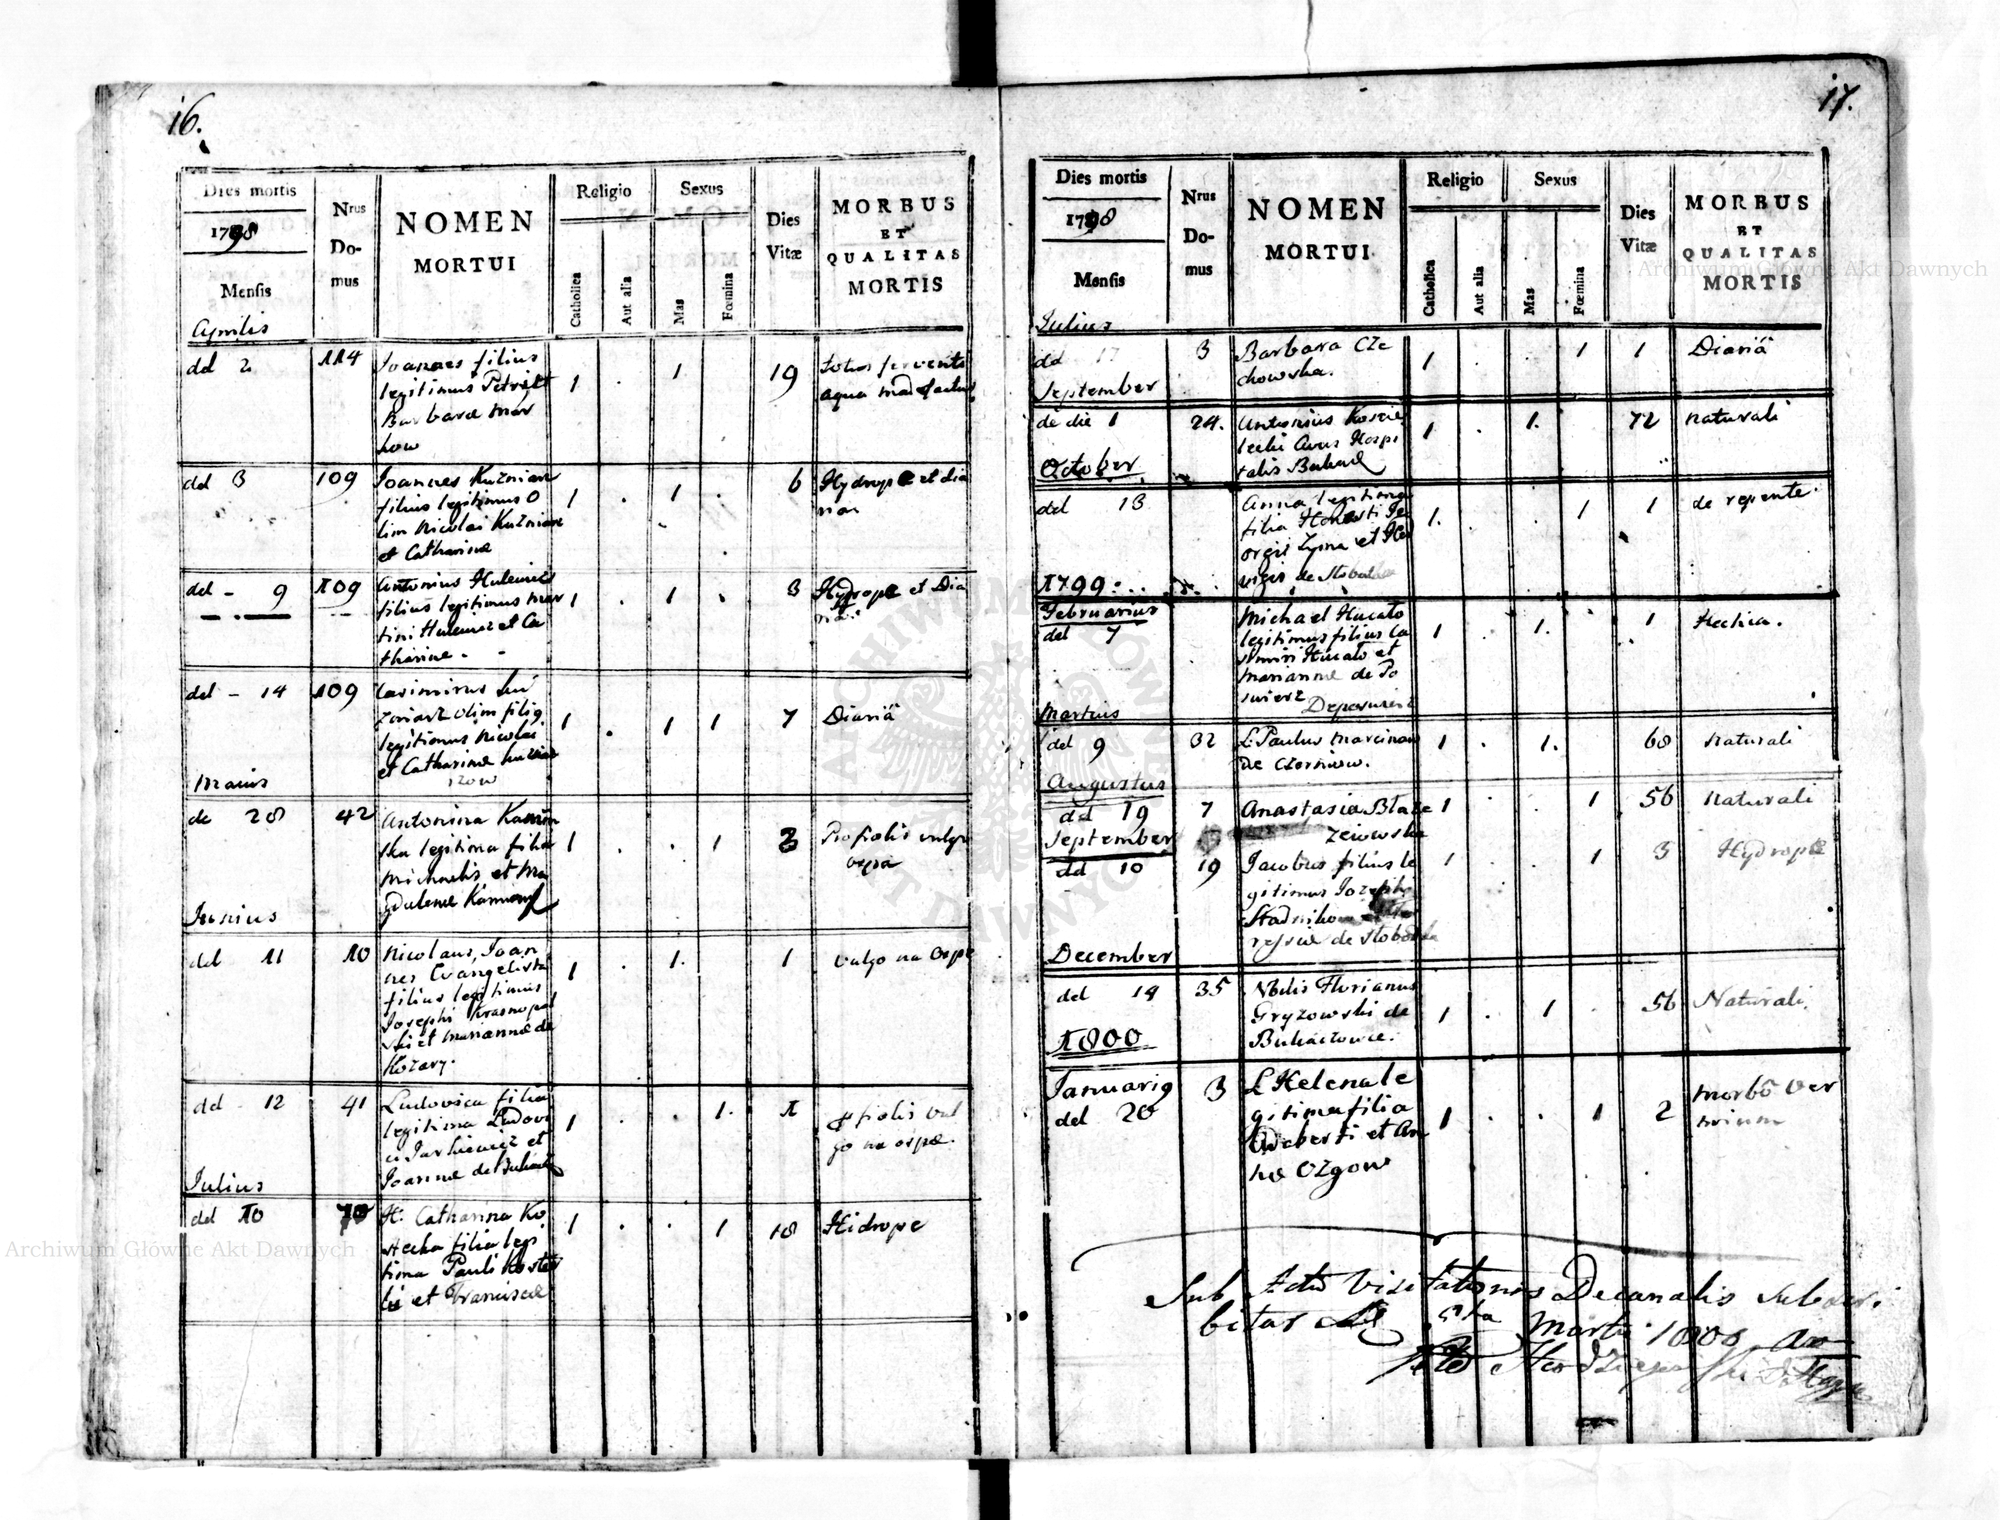 16.
Dies mortis
1798
Mensis
Aprilis
Nrus
Do-
mus
NOMEN
MORTUI
Religio
Catholica
Aut alia
Sexus
Mas
Fœmina
Dies
Vitæ
MORBUS
ET
QUALITAS
MORTIS
dd 2 114 Joannes filius
legitimus Petri et
Barbaræ Mar
kow
1 . 1 19
aqua madefactus
del 3 109 Joannes Kuzniarz
filius legitimus O
lim Nicolai Kuzniarz
et Catharinæ
1 . 1 . 6 Hydrope et dia
ria
del - 9 109 Antonius Hulewicz
filius legitimus Mar
tini Hulewicz et Ca
tharinæ -
1 . 1 . 3 Hydrope et Dia
ria
del - 14 109 Casimirus Ku
zniarz Olim filig
legitimus Nicolai
et Catharinæ Kuzniar
zow
1 . 1 1 7 Diariâ
Maius
de 28 42 Antonina Kamin
ska legitima filia
Michaelis et Ma
gdalenæ
1 . . 1 3 vulgo
ospa
Junius
del 11 10 Nicolaus, Joan
nes Evangelista
filius legitimus
Josephi Krasnopol
ski et Mariannæ de
Kozary.
1 . 1. 1 vulgo na ospe
dd - 12 41 Ludovica filia
legitima Ludovi
ci Jarkiewicz et
Joannæ de
1 . . 1. 1 vul
go na ospæ.
Julius
del 10 70 H. Catharina Ko
stecka filia legi
tima Pauli Kostec
ki et Franciscæ
1 . . 1 18 Hidrope
17.
Dies mortis
1798
Mensis
Julius
Nrus
Do-
mus
NOMEN
MORTUI
Religio
Catholica
Aut alia
Sexus
Mas
Fœmina
Dies
Vitæ
MORBUS
ET
QUALITAS
MORTIS
dd 17 3 Barbara Cze
chowska.
1 1 1 Diariâ
September
de die 1 24. Antonius Koscie
lecki Avus Hospi
talis
1 . 1. 72 naturali
October
del 13 Anna legitima
filia Honesti Ge
orgii Zyma et He
vigis de Sloboda
1. . . 1 1 de repente
1799:
Februarius
del 7 Michael Hucało
legitimus filius Ca
simiri Hucało et
Mariannæ de Po
swierz
1 . 1. 1 Hectica.
Martius
del 9 32 L. Paulus Marcinow
de Czerniow.
1 . 1. 68 Naturali
Augustus
dd 19 7 Anastasia Błaże
zeiowska
1 1 56 Naturali
September
dd 10 19 Jacobus filius le
gitimus Josephi
Stadnikow
de Sloboda
1 . . 1 3 Hydrope
December
del 14 35 Nobilis Florianus
Gryzowski de
Bukaczowce.
1 . 1 . 56 Naturali.
1800
Januarig
del 20 3 L Helena le
gitima filia
Adalberti et An
næ Ozgow
1 . . 1 2 morbô Ver
mium
Sub Actu Visitationis Decanalis Subscri
bitur 5ta Martii 1800 Ao
Archiwum Główne Akt Dawnych
Archiwum Główne Akt Dawnych